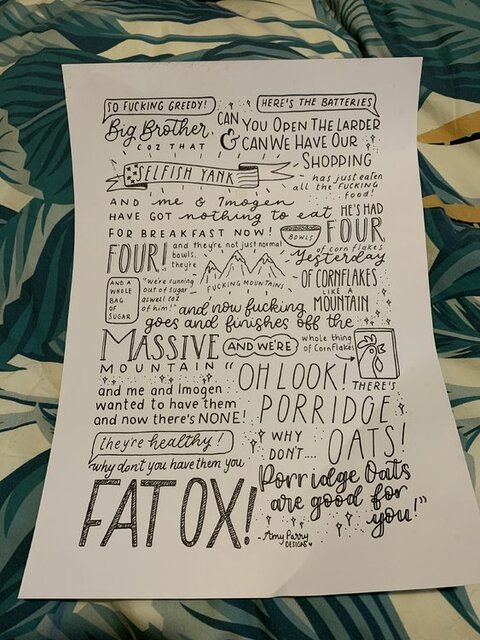 SO FUCKING GREEDY!
HERE'S THE BATTERIES
Big Brother,
COZ THAT
CAN YOU OPEN THE LARDER
& CAN WE HAVE OUR
SHOPPING
SELFISH YANK
has just eaten
all the FUCKING
food!
AND me & Imogen
HAVE GOT nothing to eat
FOR BREAKFAST NOW!
BOWLS
HE'S HAD
FOUR
of corn flakes
Yesterday
FOUR!
and they're not just normal
bowls,
they're
FUCKING MOUNTAINS
OF CORNFLAKES
LIKE A
MOUNTAIN
AND A
WHOLE
BAG
OF
SUGAR
"we're running
out of sugar
aswell coz
of him!"
and now fucking
goes and finishes off the
MASSIVE
MOUNTAIN
AND WE'RE
whole thing
of Cornflakes
"OH LOOK!
THERE'S
PORRIDGE
OATS!
and me and Imogen
wanted to have them
and now there's NONE!
WHY
DON'T....
they're healthy!
why don't you have them you
FAT OX!
Porridge Oats
are good for
you!"
-Amy Parry
DESIGNS